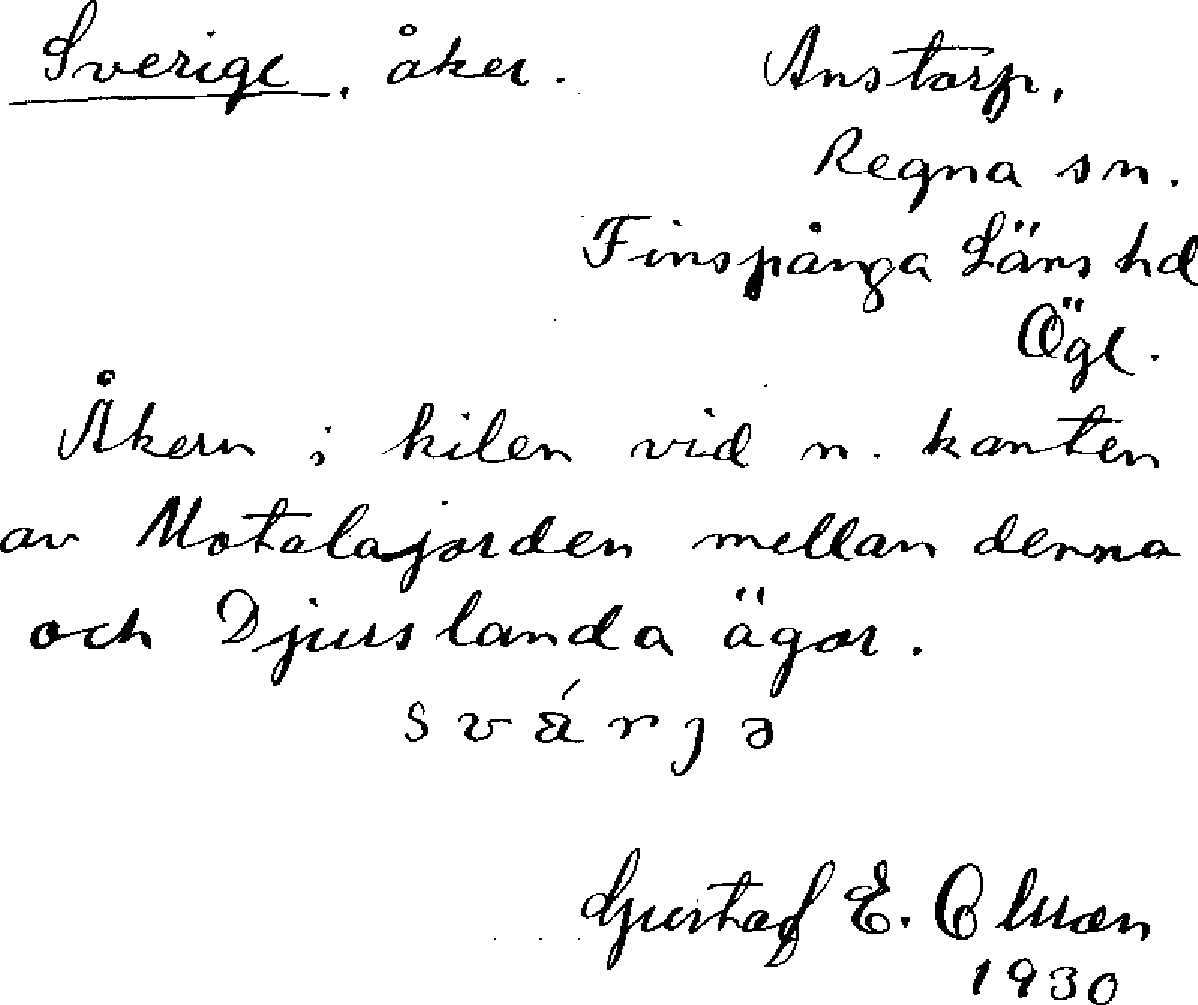 Sverige, åker. Anstorp,
Regna sn.
Finspånga Läns hd
Ögl.
Åkern i kilen vid n. kanten
av Motalajorden mellan denna
och Djurslanda ägor.
Gustaf E.
1930